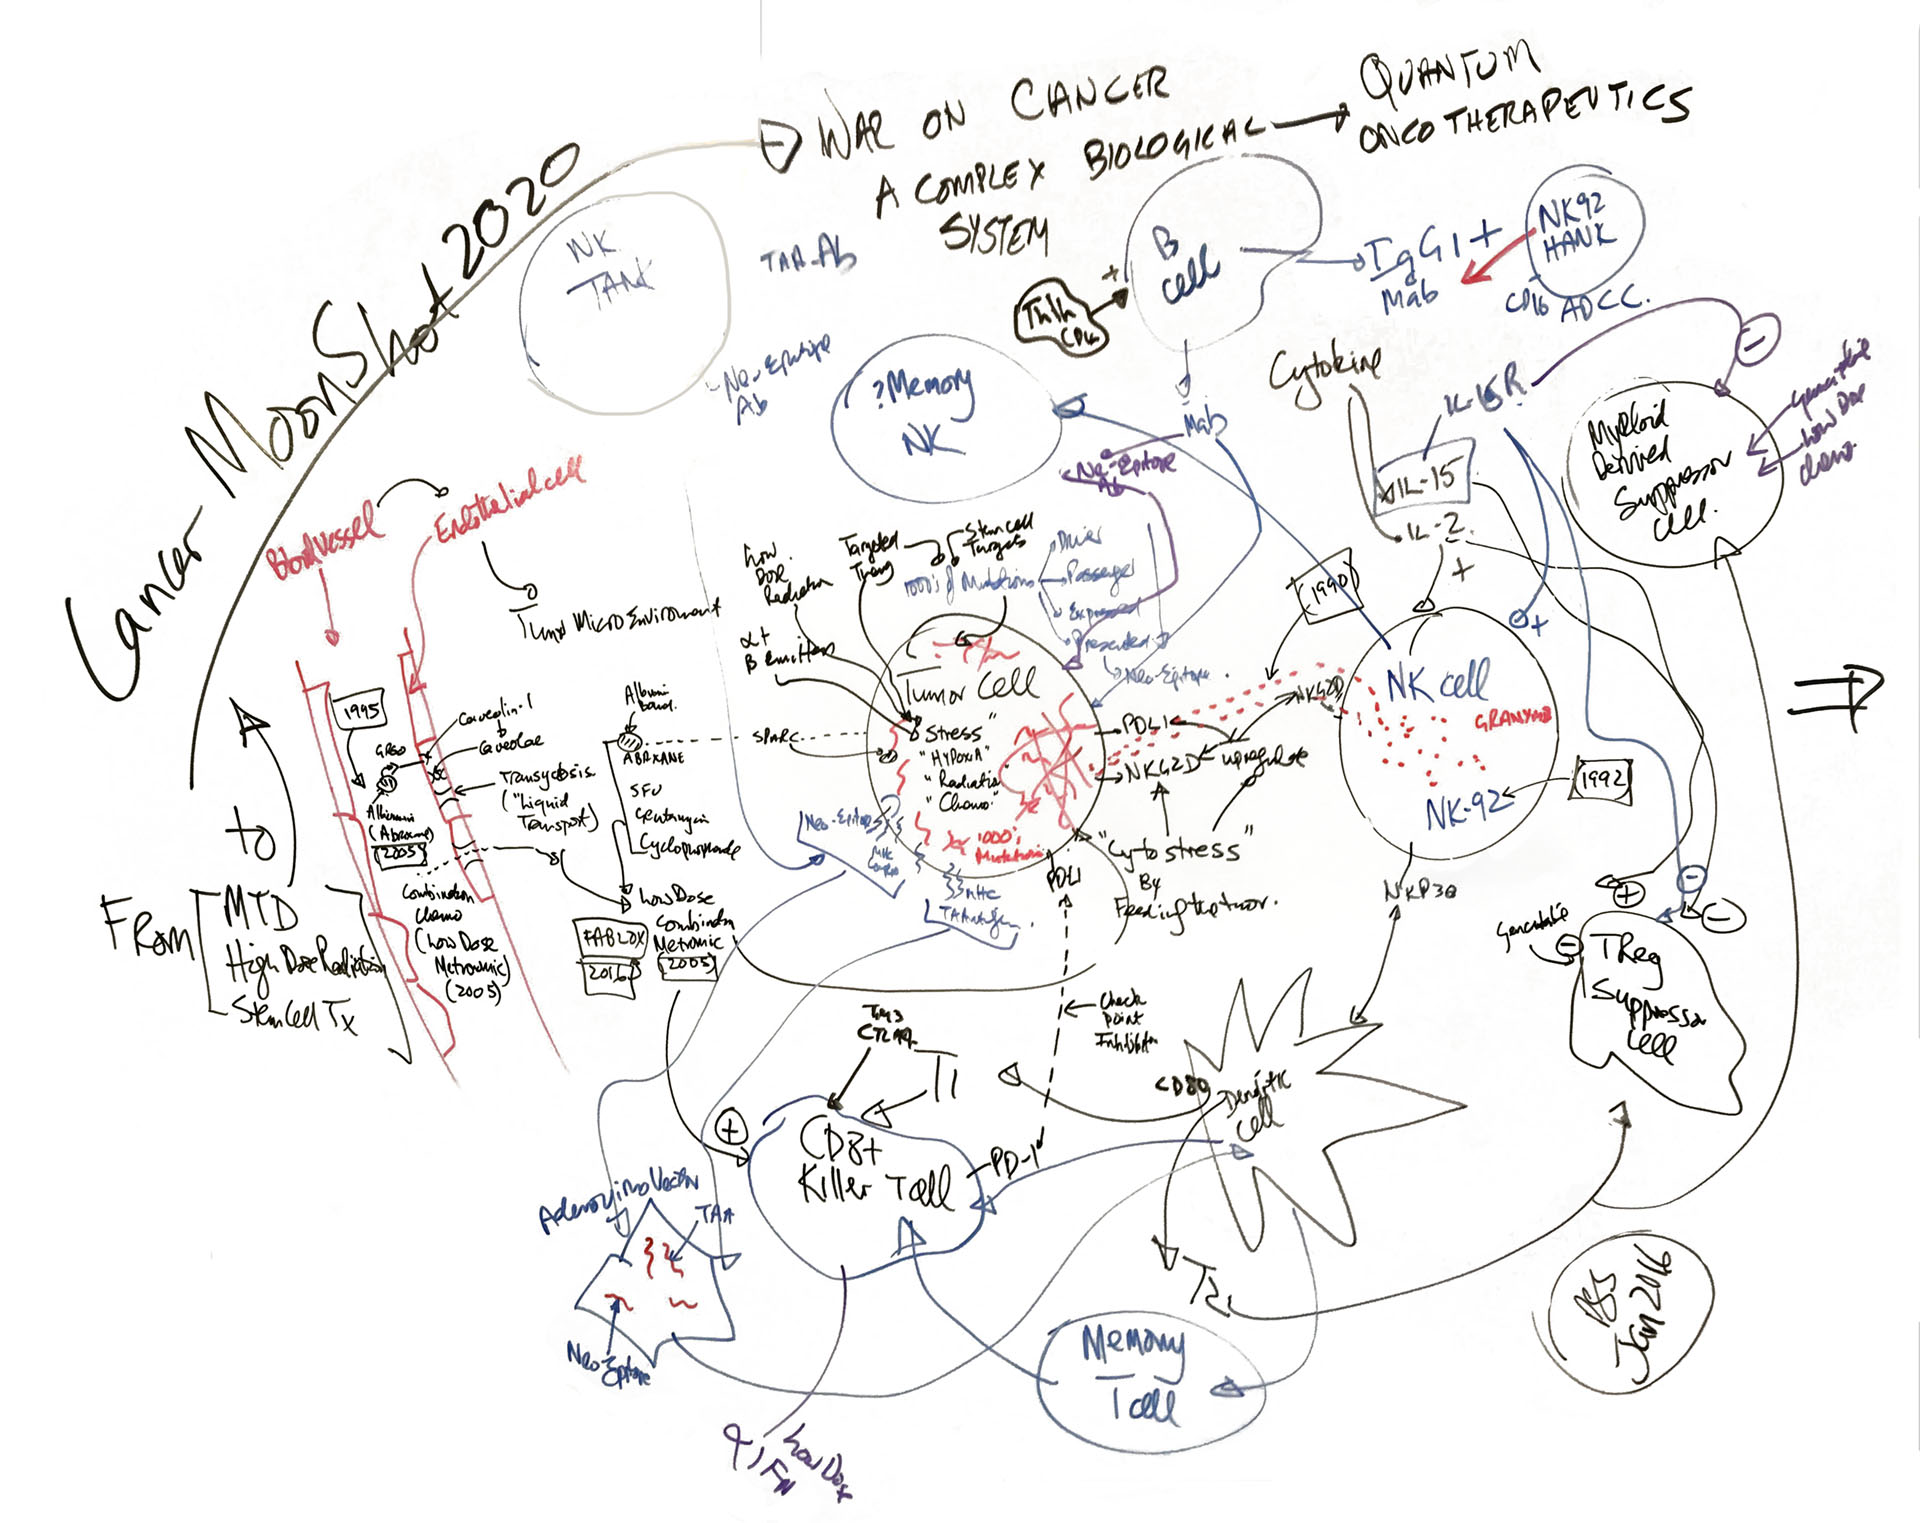 Cancer MoonShot 2020
WAR ON CANCER
A COMPLEX BIOLOGICAL
SYSTEM
QUANTUM
ONCOTHERAPEUTICS
NK
TANK
TAA-Ab
Neo-Epitope
Ab
B
cell
CD4
+
IgG1 +
Mab
NK92
HANK
CD16 ADCC.
?Memory
NK
Mab
Neo-Epitope
Ab
Cytokine
IL-15R
IL-15
IL-2
+
−
Myeloid
Derived
Suppressor
Cell.
Low Dose
chemo.
Blood Vessel
Endothelial cell
Tumor MicroEnvironment
Low
Dose
Radiation
Targeted
Therapy
Stem cell
Targets
1000's of Mutations
Driver
Passenger
Expressed
Presented
Neo-Epitope.
α+
B emitters
Tumor Cell
"Stress"
"Hypoxia"
"Radiation"
"Chemo"
1000's
Mutations
PDL1
NKG2D
upregulate
NKG2D
1990
+
NK cell
GRANYME
NK-92
1992
"Cyto stress"
By
Feeding the tumor.
PDL1
NKP30
1995
GP60
Caveolin-1
Caveolae
Transcytosis
("Liquid
Transport)
Albumin
(Abraxane)
2005
Albumin
bound.
ABRXANE
SPARC
5FU
Cyclophosphamide
Combination
Chemo
(Low Dose
Metronomic)
(2005)
FABLOX
2016
Low Dose
Combination
Metronomic
(2005)
Neo-Epitope
MHC
MHC
to
FROM
MTD
High Dose Radiation
Stem Cell Tx
+
−
−
−
TReg
Suppressor
Cell
Check
point
Inhibitor
CTLA4
T1
CD80
Dendritic
Cell
+
CD8+
Killer T cell
PD-1
Adenovirus Vector
TAA
Neo
Epitope
T2
Memory
T cell
Low Dose
PSS
Jan 2016